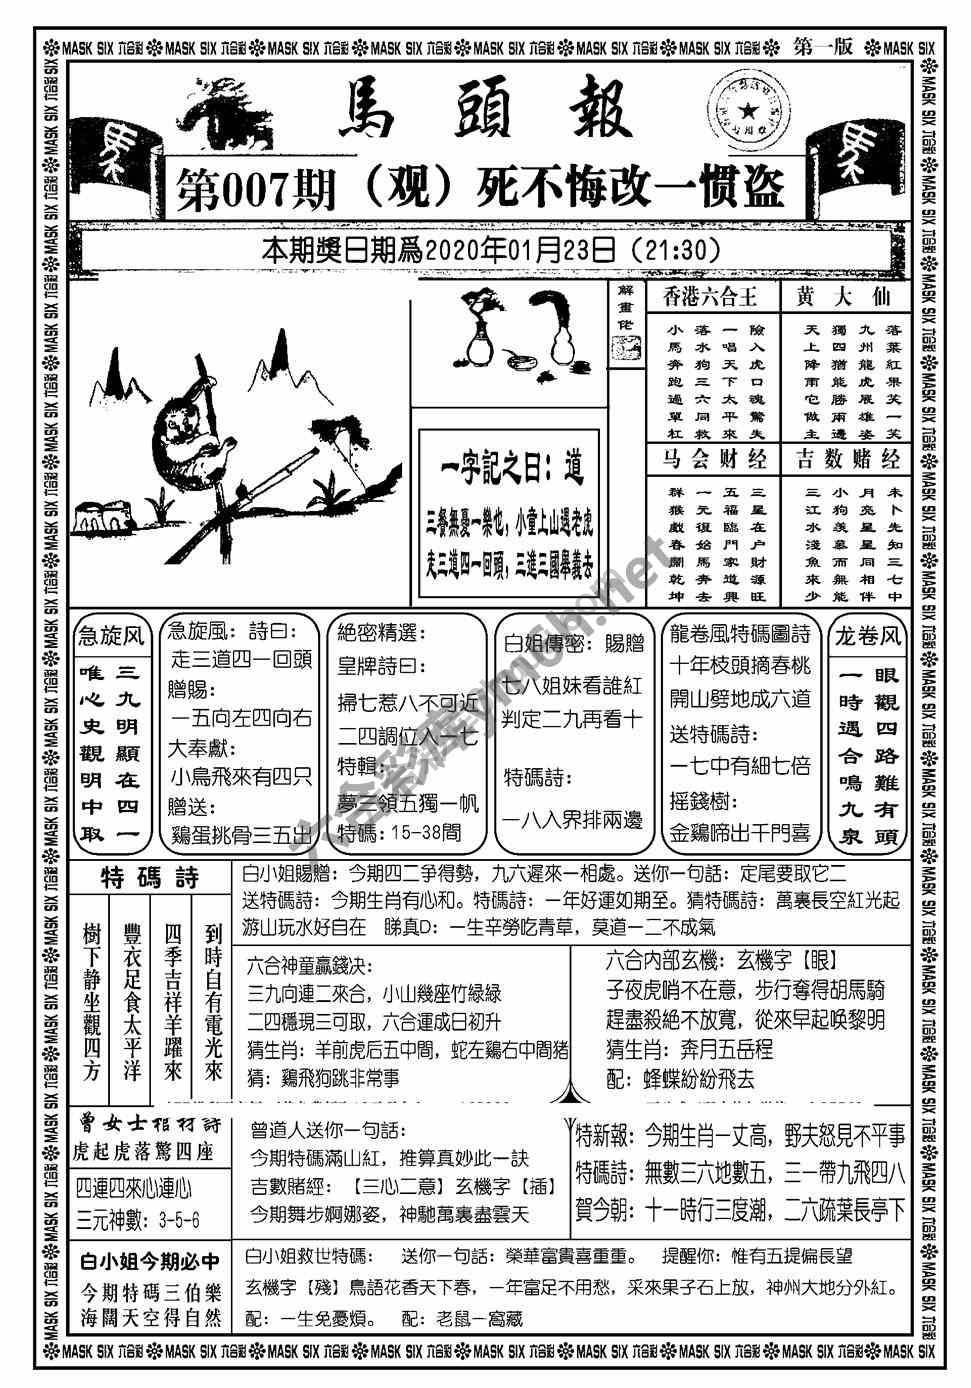 MASK SIX 六合彩 MASK SIX 六合彩 MASK SIX 六合彩 MASK SIX 六合彩 MASK SIX 六合彩 MASK SIX 六合彩 MASK SIX 六合彩 第一版 MASK SIX
馬頭報
第007期（观）死不悔改一惯盗
本期獎日期爲2020年01月23日（21:30）
解畫佬
一字記之曰：道
三餐無憂一樂也，小童上山遇老虎
走三道四一回頭，三進三國舉義去
香港六合王
險入虎口魂驚失
一唱天下太平來
落水狗三六同救
小馬奔跑過單杠
黄大仙
落葉紅果笑一笑
九州龍虎展雄姿
獨四猶能勝兩邊
天上降雨它做主
马会财经
三星在户財源旺
五福臨門家道興
一元復始馬奔去
群猴戲春鬧乾坤
吉数赌经
未卜先知三七中
月亮星星同相伴
小狗羡慕而無能
三江水淺魚來少
急旋风
三九明顯在四一
唯心史觀明中取
急旋風：詩曰：
走三道四一回頭
贈賜：
一五向左四向右
大奉獻：
小鳥飛來有四只
贈送：
鷄蛋挑骨三五出
絕密精選：
皇牌詩曰：
掃七惹八不可近
二四調位入一七
特輯：
夢三領五獨一帆
特碼：15-38間
白姐傳密：賜贈
七八姐妹看誰紅
判定二九再看十
特碼詩：
一八入界排兩邊
龍卷風特碼圖詩
十年枝頭摘春桃
開山劈地成六道
送特碼詩：
一七中有細七倍
摇錢樹：
金鷄啼出千門喜
龙卷风
眼觀四路難有頭
一時遇合鳴九泉
特碼詩
到時自有電光來
四季吉祥羊躍來
豐衣足食太平洋
樹下静坐觀四方
白小姐賜贈：今期四二爭得勢，九六遲來一相處。送你一句話：定尾要取它二
送特碼詩：今期生肖有心和。特碼詩：一年好運如期至。猜特碼詩：萬裏長空紅光起
游山玩水好自在 睇真D：一生辛勞吃青草，莫道一二不成氣
六合神童贏錢决：
三九向連二來合，小山幾座竹緑緑
二四穩現三可取，六合運成日初升
猜生肖：羊前虎后五中間，蛇左鷄右中間猪
猜：鷄飛狗跳非常事
六合内部玄機：玄機字【眼】
子夜虎哨不在意，步行奪得胡馬騎
趕盡殺絶不放寬，從來早起唤黎明
猜生肖：奔月五岳程
配：蜂蝶紛紛飛去
曾女士棺材詩
虎起虎落驚四座
四連四來心連心
三元神數：3-5-6
曾道人送你一句話：
今期特碼滿山紅，推算真妙此一訣
吉數賭經：【三心二意】玄機字【插】
今期舞步婀娜姿，神馳萬裏盡雲天
特新報：今期生肖一丈高，野夫怒見不平事
特碼詩：無數三六地數五，三一帶九飛四八
賀今朝：十一時行三度潮，二六疏葉長亭下
白小姐今期必中
今期特碼三伯樂
海闊天空得自然
白小姐救世特碼： 送你一句話：榮華富貴喜重重。 提醒你：惟有五提偏長望
玄機字【殘】鳥語花香天下春，一年富足不用愁，采來果子石上放，神州大地分外紅。
配：一生免憂煩。 配：老鼠一窩藏
MASK SIX 六合彩 MASK SIX 六合彩 MASK SIX 六合彩 MASK SIX 六合彩 MASK SIX 六合彩 MASK SIX 六合彩 MASK SIX 六合彩 MASK SIX 六合彩 MASK SIX